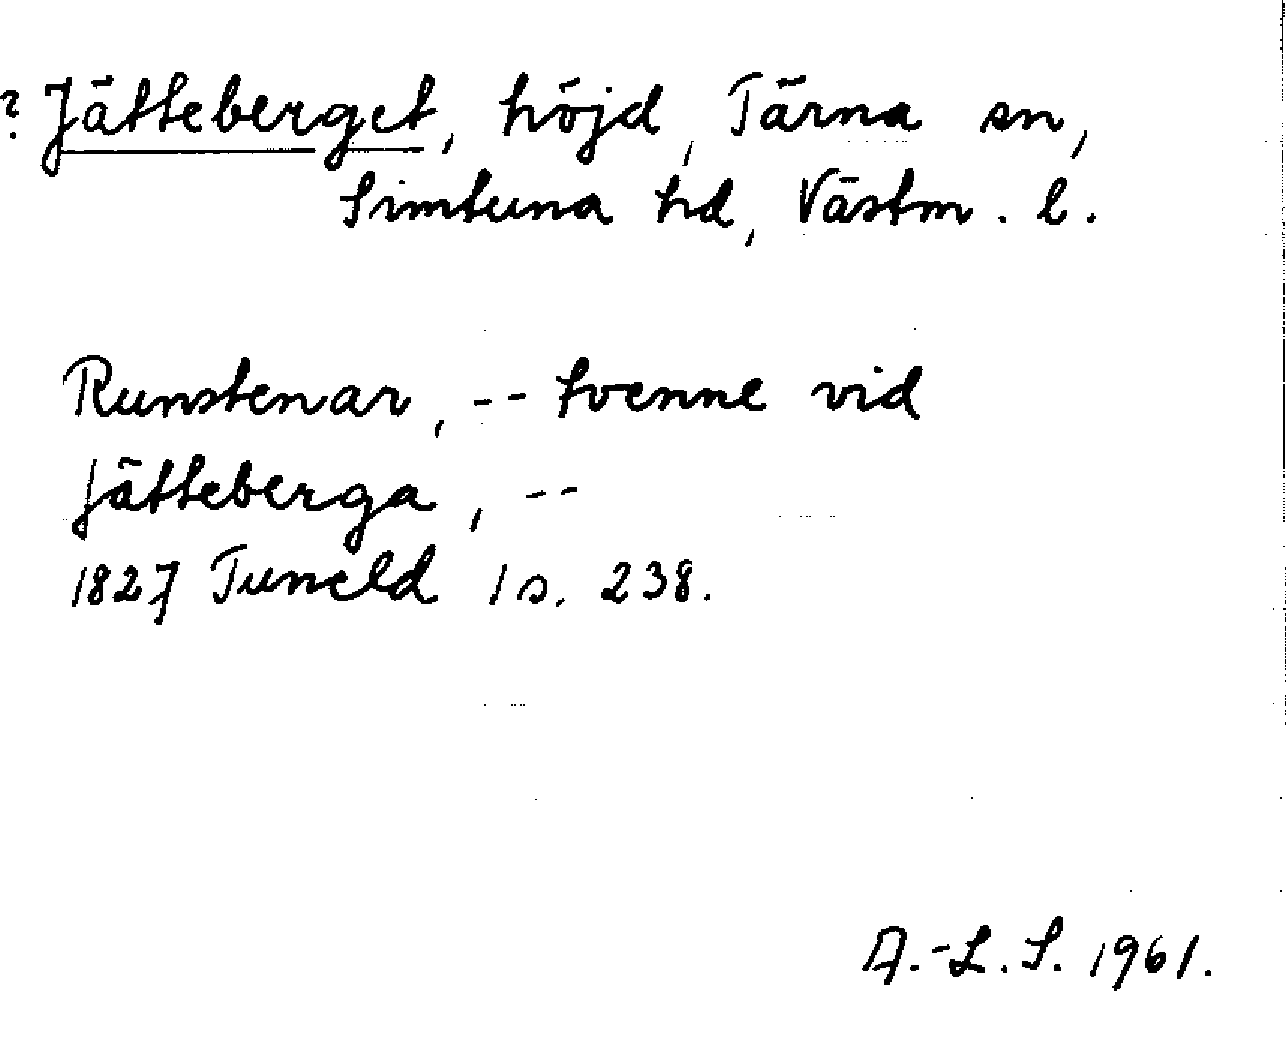 ? Jätteberget, höjd, Tärna sn,
Simtuna hd, Västm. l.
Runstenar, -- tvenne vid
Jätteberga, --
1827 Tuneld 1 s. 238.
A.-L. S. 1961.